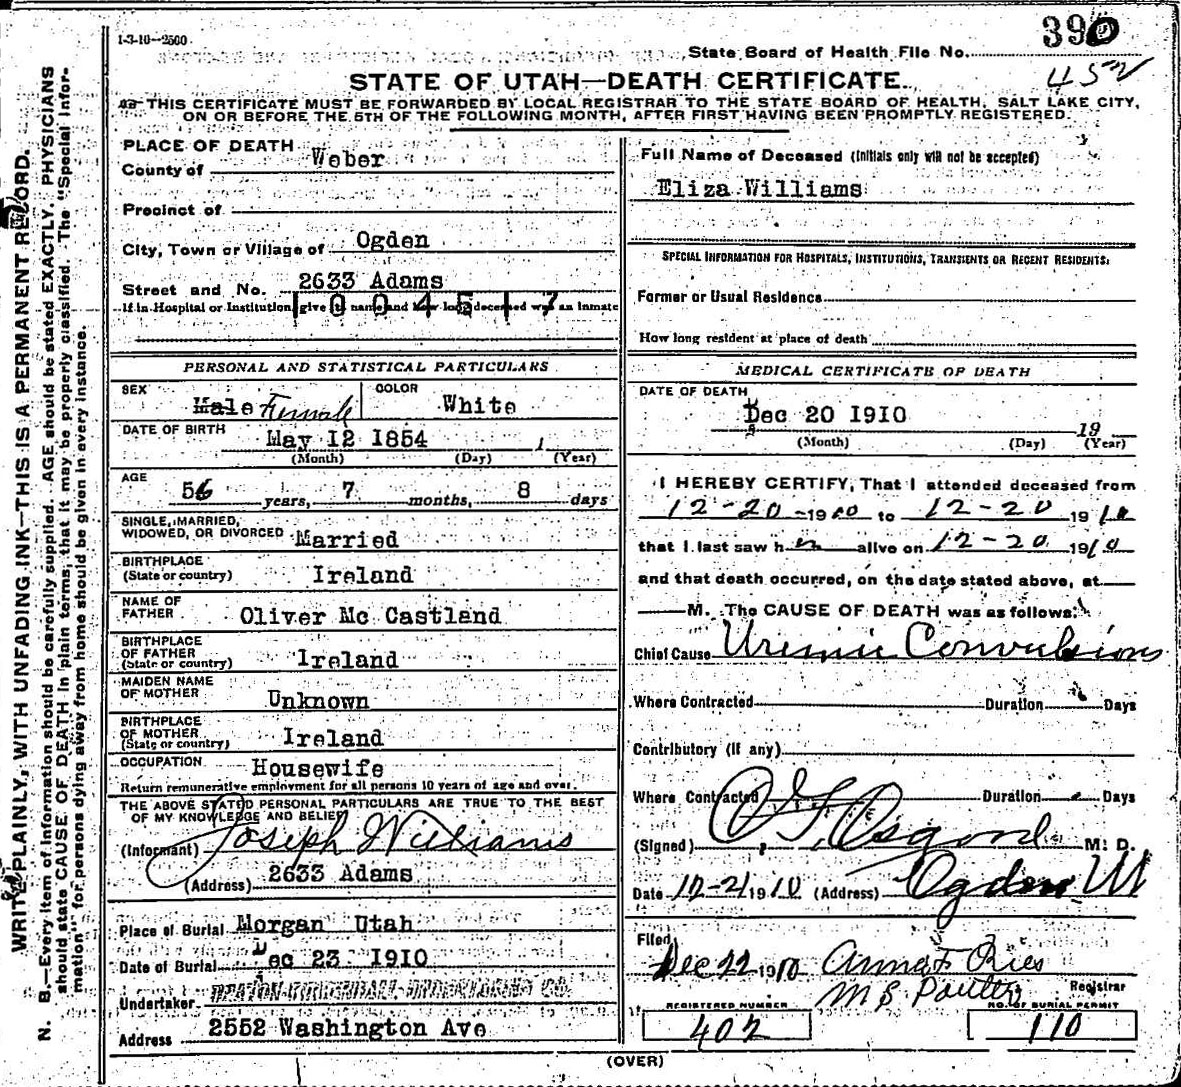 1-3-10—2500
State Board of Health File No. 390
452
STATE OF UTAH—DEATH CERTIFICATE.
THIS CERTIFICATE MUST BE FORWARDED BY LOCAL REGISTRAR TO THE STATE BOARD OF HEALTH, SALT LAKE CITY,
ON OR BEFORE THE 5TH OF THE FOLLOWING MONTH, AFTER FIRST HAVING BEEN PROMPTLY REGISTERED.
WRITE PLAINLY, WITH UNFADING INK—THIS IS A PERMANENT RECORD.
N. B.—Every item of information should be carefully supplied. AGE should be stated EXACTLY. PHYSICIANS
should state CAUSE OF DEATH in plain terms, that it may be properly classified. The "Special Infor-
mation" for persons dying away from home should be given in every instance.
PLACE OF DEATH
County of Weber
Precinct of
City, Town or Village of Ogden
Street and No. 2633 Adams
If in Hospital or Institution, give its name and how long deceased was an inmate
1004517
PERSONAL AND STATISTICAL PARTICULARS
SEX Male Female COLOR White
DATE OF BIRTH May 12 1854 1
(Month) (Day) (Year)
AGE 56 years, 7 months, 8 days
SINGLE, MARRIED,
WIDOWED, OR DIVORCED Married
BIRTHPLACE
(State or country) Ireland
NAME OF
FATHER Oliver Mc Castland
BIRTHPLACE
OF FATHER
(State or country) Ireland
MAIDEN NAME
OF MOTHER Unknown
BIRTHPLACE
OF MOTHER
(State or country) Ireland
OCCUPATION Housewife
Return remunerative employment for all persons 10 years of age and over.
THE ABOVE STATED PERSONAL PARTICULARS ARE TRUE TO THE BEST
OF MY KNOWLEDGE AND BELIEF
(Informant) Joseph Williams
(Address) 2633 Adams
Place of Burial Morgan Utah
Date of Burial Dec 23 1910
Undertaker
Address 2552 Washington Ave
Full Name of Deceased (Initials only will not be accepted)
Eliza Williams
SPECIAL INFORMATION FOR HOSPITALS, INSTITUTIONS, TRANSIENTS OR RECENT RESIDENTS:
Former or Usual Residence
How long resident at place of death
MEDICAL CERTIFICATE OF DEATH
DATE OF DEATH
Dec 20 1910 19
(Month) (Day) (Year)
I HEREBY CERTIFY, That I attended deceased from
12-20-1910 to 12-20 1910
that I last saw her alive on 12-20 1910
and that death occurred, on the date stated above, at
M. The CAUSE OF DEATH was as follows:
Chief Cause Uremic Convulsions
Where Contracted Duration Days
Contributory (if any)
Where Contracted Duration Days
(Signed) Osgood M. D.
Date 12-21 1910 (Address) Ogden Ut
Filed
Dec 22 1910 Anna F Ries
M S Poulter Registrar
REGISTERED NUMBER NO. OF BURIAL PERMIT
402 110
(OVER)